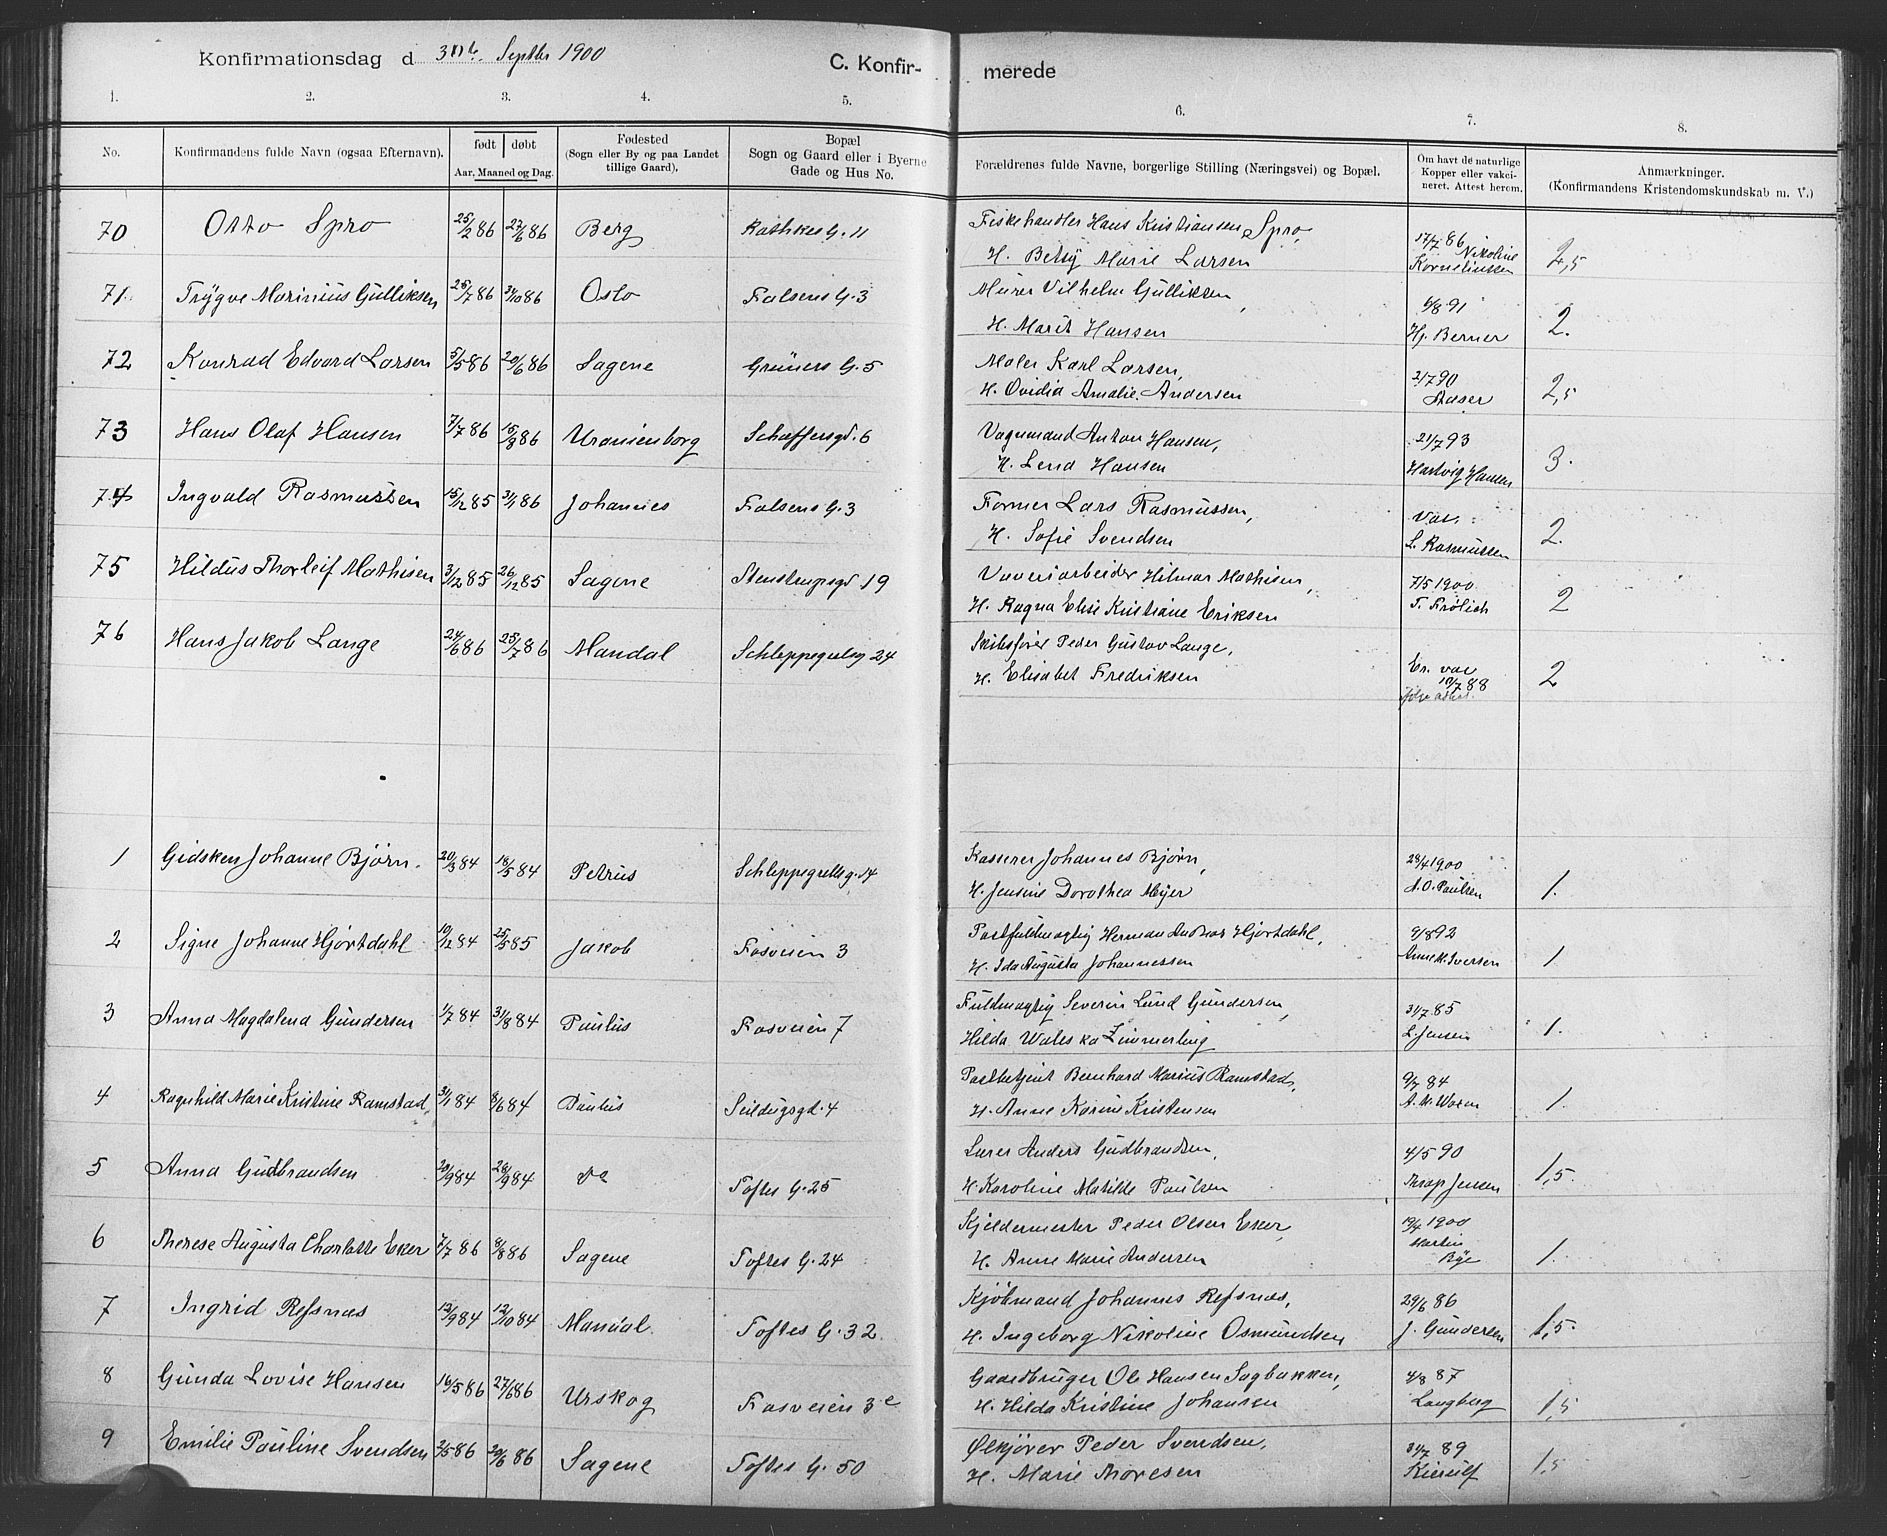 Konfirmationsdag d 30te Septbr 1900 C. Konfir- merede
1. 2. 3. 4. 5. 6. 7. 8.
No.
Konfirmandens fulde Navn (ogsaa Efternavn).
født døbt
Aar, Maaned og Dag.
Fødested
(Sogn eller By og paa Landet
tillige Gaard).
Bopæl
Sogn og Gaard eller i Byerne
Gade og Hus No.
Forældrenes fulde Navne, borgerlige Stilling (Næringsvei) og Bopæl.
Om havt de naturlige
Kopper eller vakci-
neret. Attest herom.
Anmærkninger.
(Konfirmandens Kristendomskundskab m. V.)
70 Otto Spro 25/2 86 27/6 86 Berg Rathkes G. 11 Fiskehandler Hans Kristiansen Spro, 17/7 86 Nikoline
H. Betsy Marie Larsen Korneliussen 2,5
71 Trygve Marinius Gulliksen 25/7 86 31/10 86 Oslo Falsens G. 3 Murer Vilhelm Gulliksen, 6/8 91
H. Marit Hansen Hj. Berner 2.
72 Konrad Edvard Larsen 5/5 86 20/6 86 Sagene Grüners G. 5 Maler Karl Larsen, 2/7 90
H. Ovidia Amalie Andersen Aaser 2,5
73 Hans Olaf Hansen 7/7 86 15/8 86 Uranienborg Schaffersgd. 6 Vognmand Anton Hansen, 21/7 93
H. Lena Hansen Hartvig Hansen 3.
74 Ingvald Rasmussen 15/12 85 31/1 86 Johannes Falsens G. 3 Former Lars Rasmussen, Vac.
H. Sofie Svendsen L. Rasmussen 2.
75 Hildus Thorleif Mathisen 3/12 85 26/12 85 Sagene Stenstrupsgd 19 Væveriarbeider Hilmar Mathisen, 7/5 1900
H. Ragna Elise Kristiane Eriksen T. Frölich 2
76 Hans Jakob Lange 24/6 86 25/7 86 Mandal Schleppegrellsg 24 Skibsfører Peder Gustav Lange,
H. Elisabet Fredriksen Er. vac 10/7 88 2
1 Gidsken Johanne Bjørn. 20/3 84 18/5 84 Petrus Schleppegrellsg. 14 Kasserer Johannes Bjørn, 28/4 1900
H. Jensine Dorothea Meyer A. O. Paulsen 1.
2 Signe Johanne Hjortdahl 10/12 84 25/5 85 Jakob Fosveien 3 Postfuldmægtig Herman Hjortdahl, 9/8 92
H. Ida Augusta Johannessen Anne M. Iversen 1
3 Anna Magdalena Gundersen 1/7 84 31/8 84 Paulus Fosveien 7 Fuldmægtig Severin Lund Gundersen, 31/7 85
Hilda Waleska Zimmerling L. Jensen 1.
4 Ragnhild Marie Kristine Ramstad, 31/1 84 8/6 84 Paulus Seildugsgd. 4 Postbetjent Bernhard Marius Ramstad, 9/7 84
H. Anne Karine Kristensen 1.
5 Anna Gudbrandsen 20/9 84 28/9 84 Toftes G. 25 Lærer Anders Gudbrandsen, 4/5 90
H. Karoline Matilde Paulsen Thrap Jensen 1,5.
6 Therese Augusta Charlotte Eker 7/7 86 8/8 86 Sagene Toftes G. 24 Kjeldermester Peder Olsen Eker, 19/4 1900
H. Anne Marie Andersen Martin Bye 1.
7 Ingrid Refsnæs 13/9 84 12/10 84 Mandal. Toftes G. 32 Kjøbmand Johannes Refsnæs, 29/6 86
H. Ingeborg Nikoline Osmundsen J. Gundersen 1,5.
8 Gunda Lovise Hansen 16/5 86 27/6 86 Urskog Fosveien 3c Gaardbruger Ole Hansen Sagbakken, 4/8 87
H. Hilda Kristine Johansen Langberg 1,5
9 Emilie Pauline Svendsen 2/5 86 20/6 86 Sagene Toftes G. 50 Ølkjører Peder Svendsen, 31/7 89
H. Marie Thoresen Kierulf 1,5